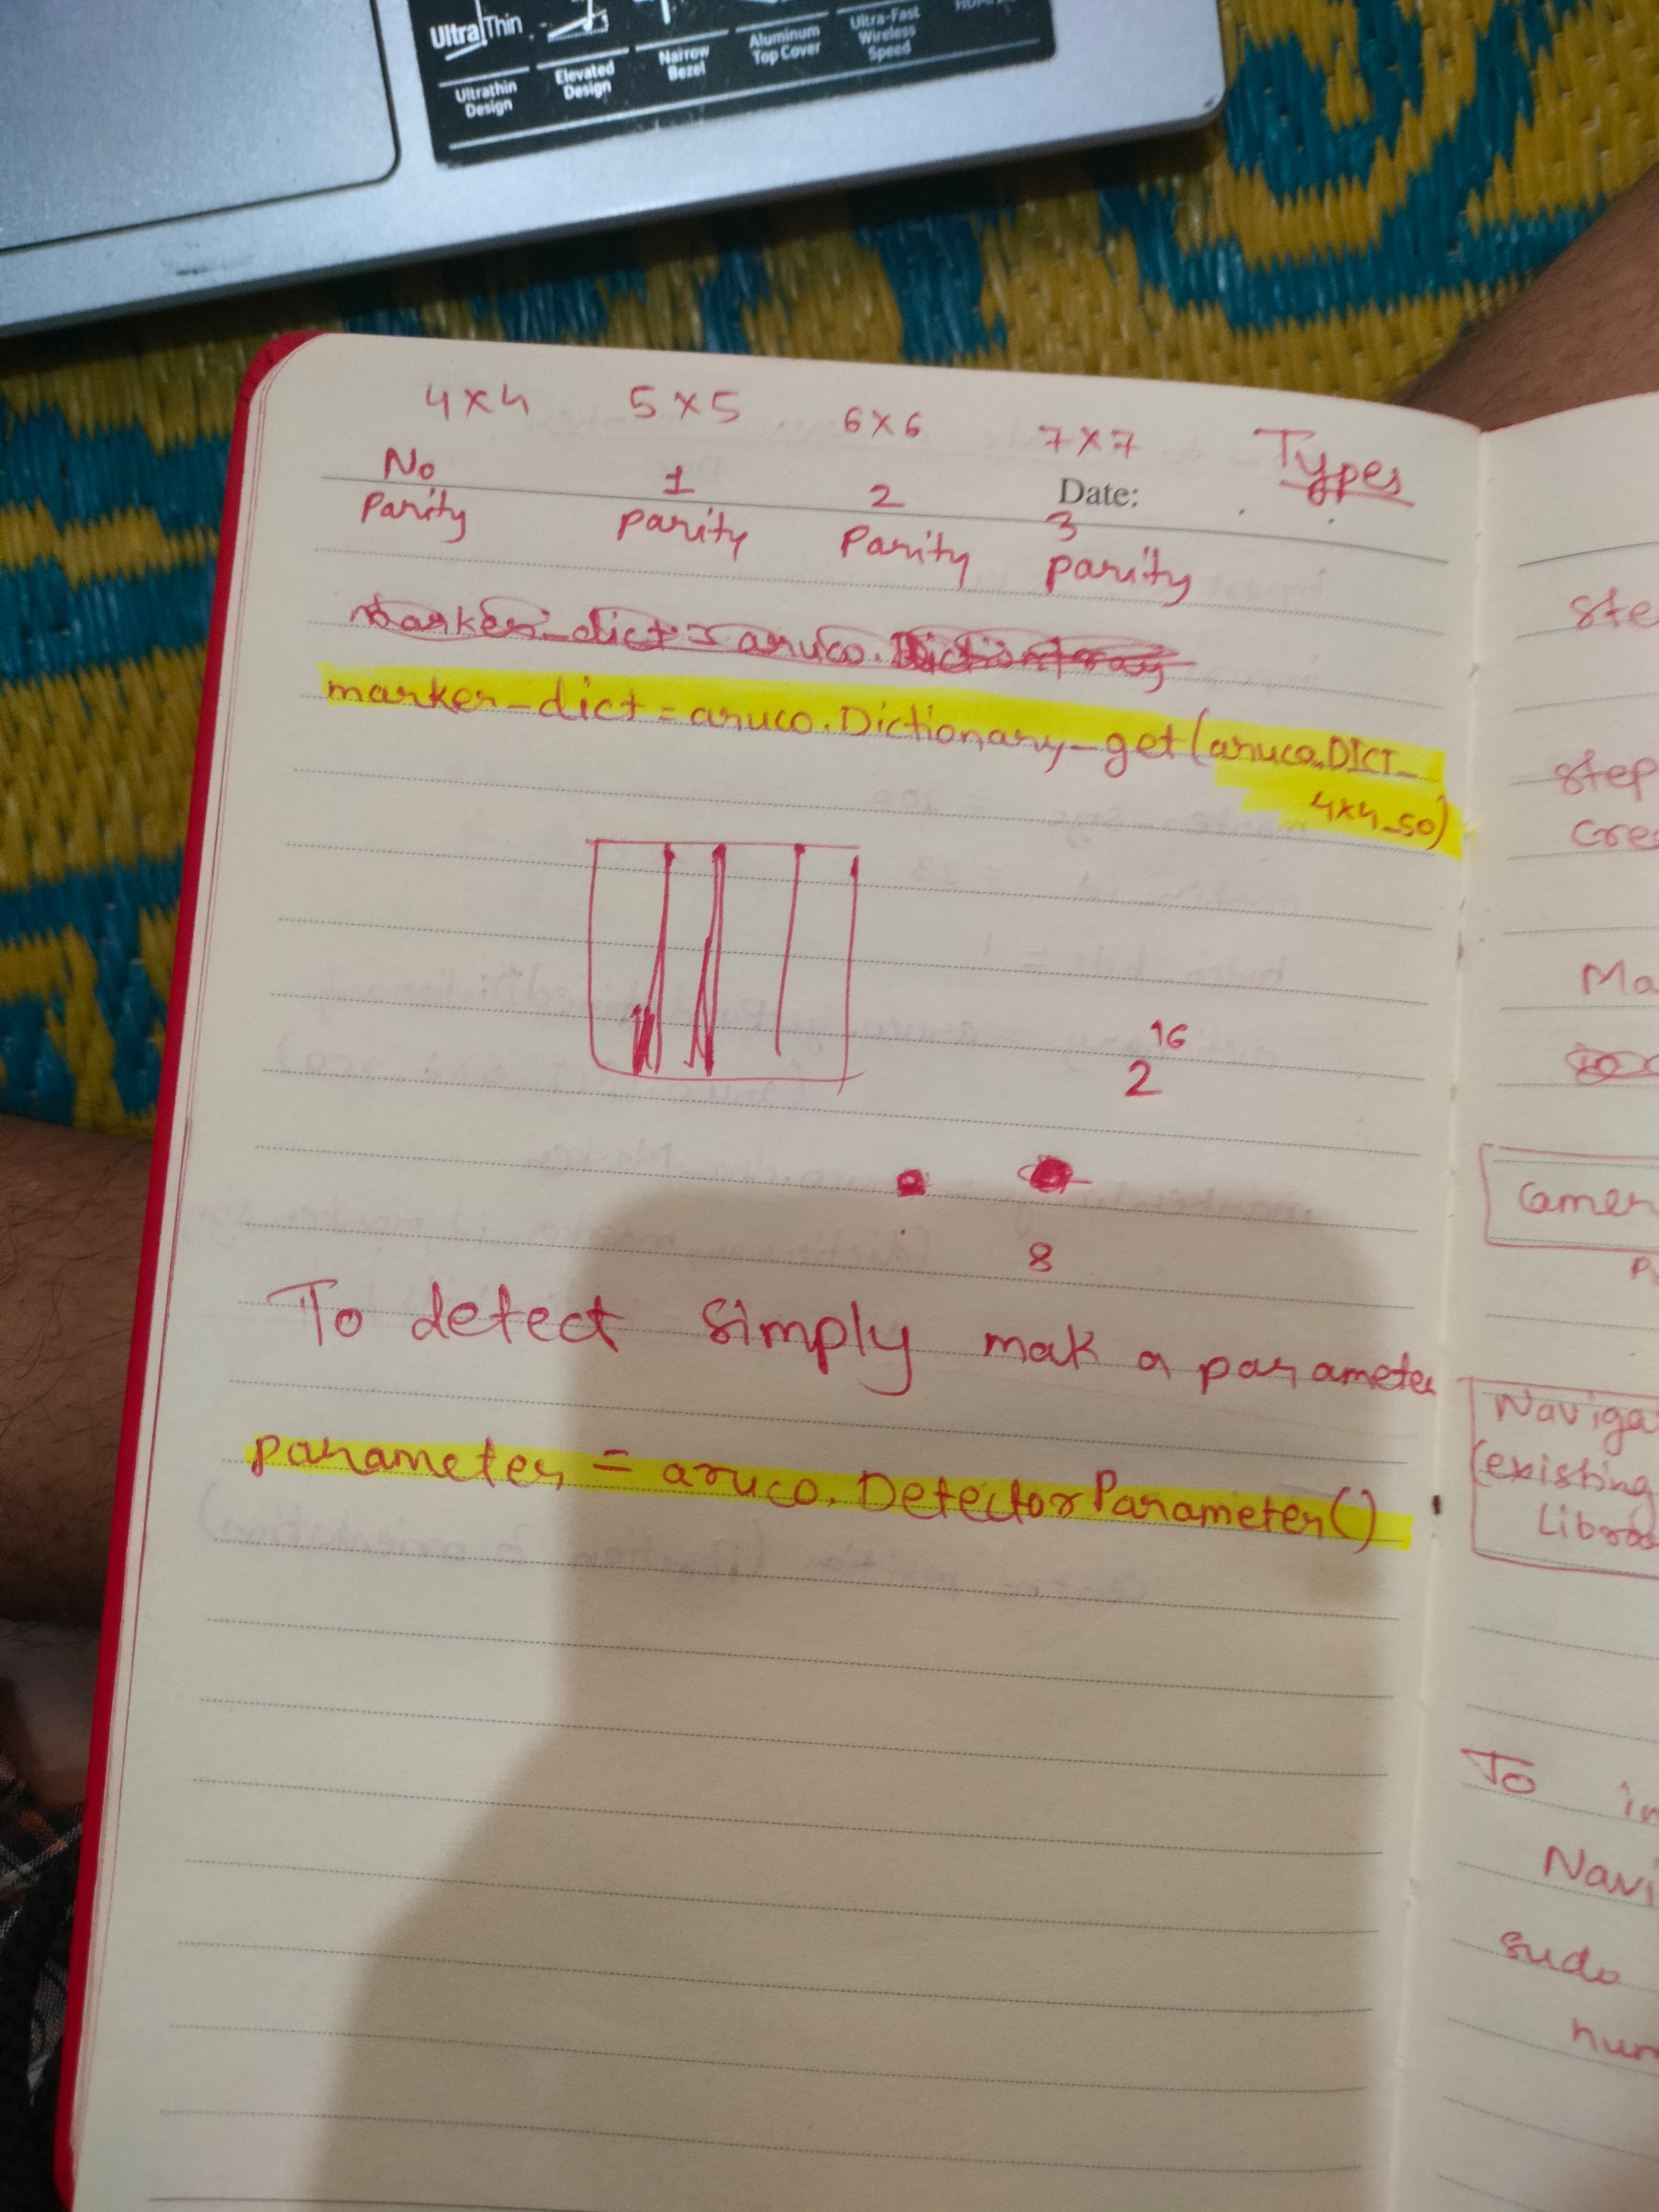 Ultra Thin
Ultrathin Design
Elevated Design
Narrow Bezel
Aluminum Top Cover
Ultra-Fast Wireless Speed
4x4 5x5 6x6 7x7 Types
Date:
No Parity 1 parity 2 Parity 3 parity
marker_dict = aruco.
marker_dict = aruco.Dictionary_get(aruco.DICT_
4x4_50)
2^16
8
To detect simply mak a parameter
parameter = aruco.DetectorParameter()
Ma
Naviga
(existing
To in
Navi
sudo